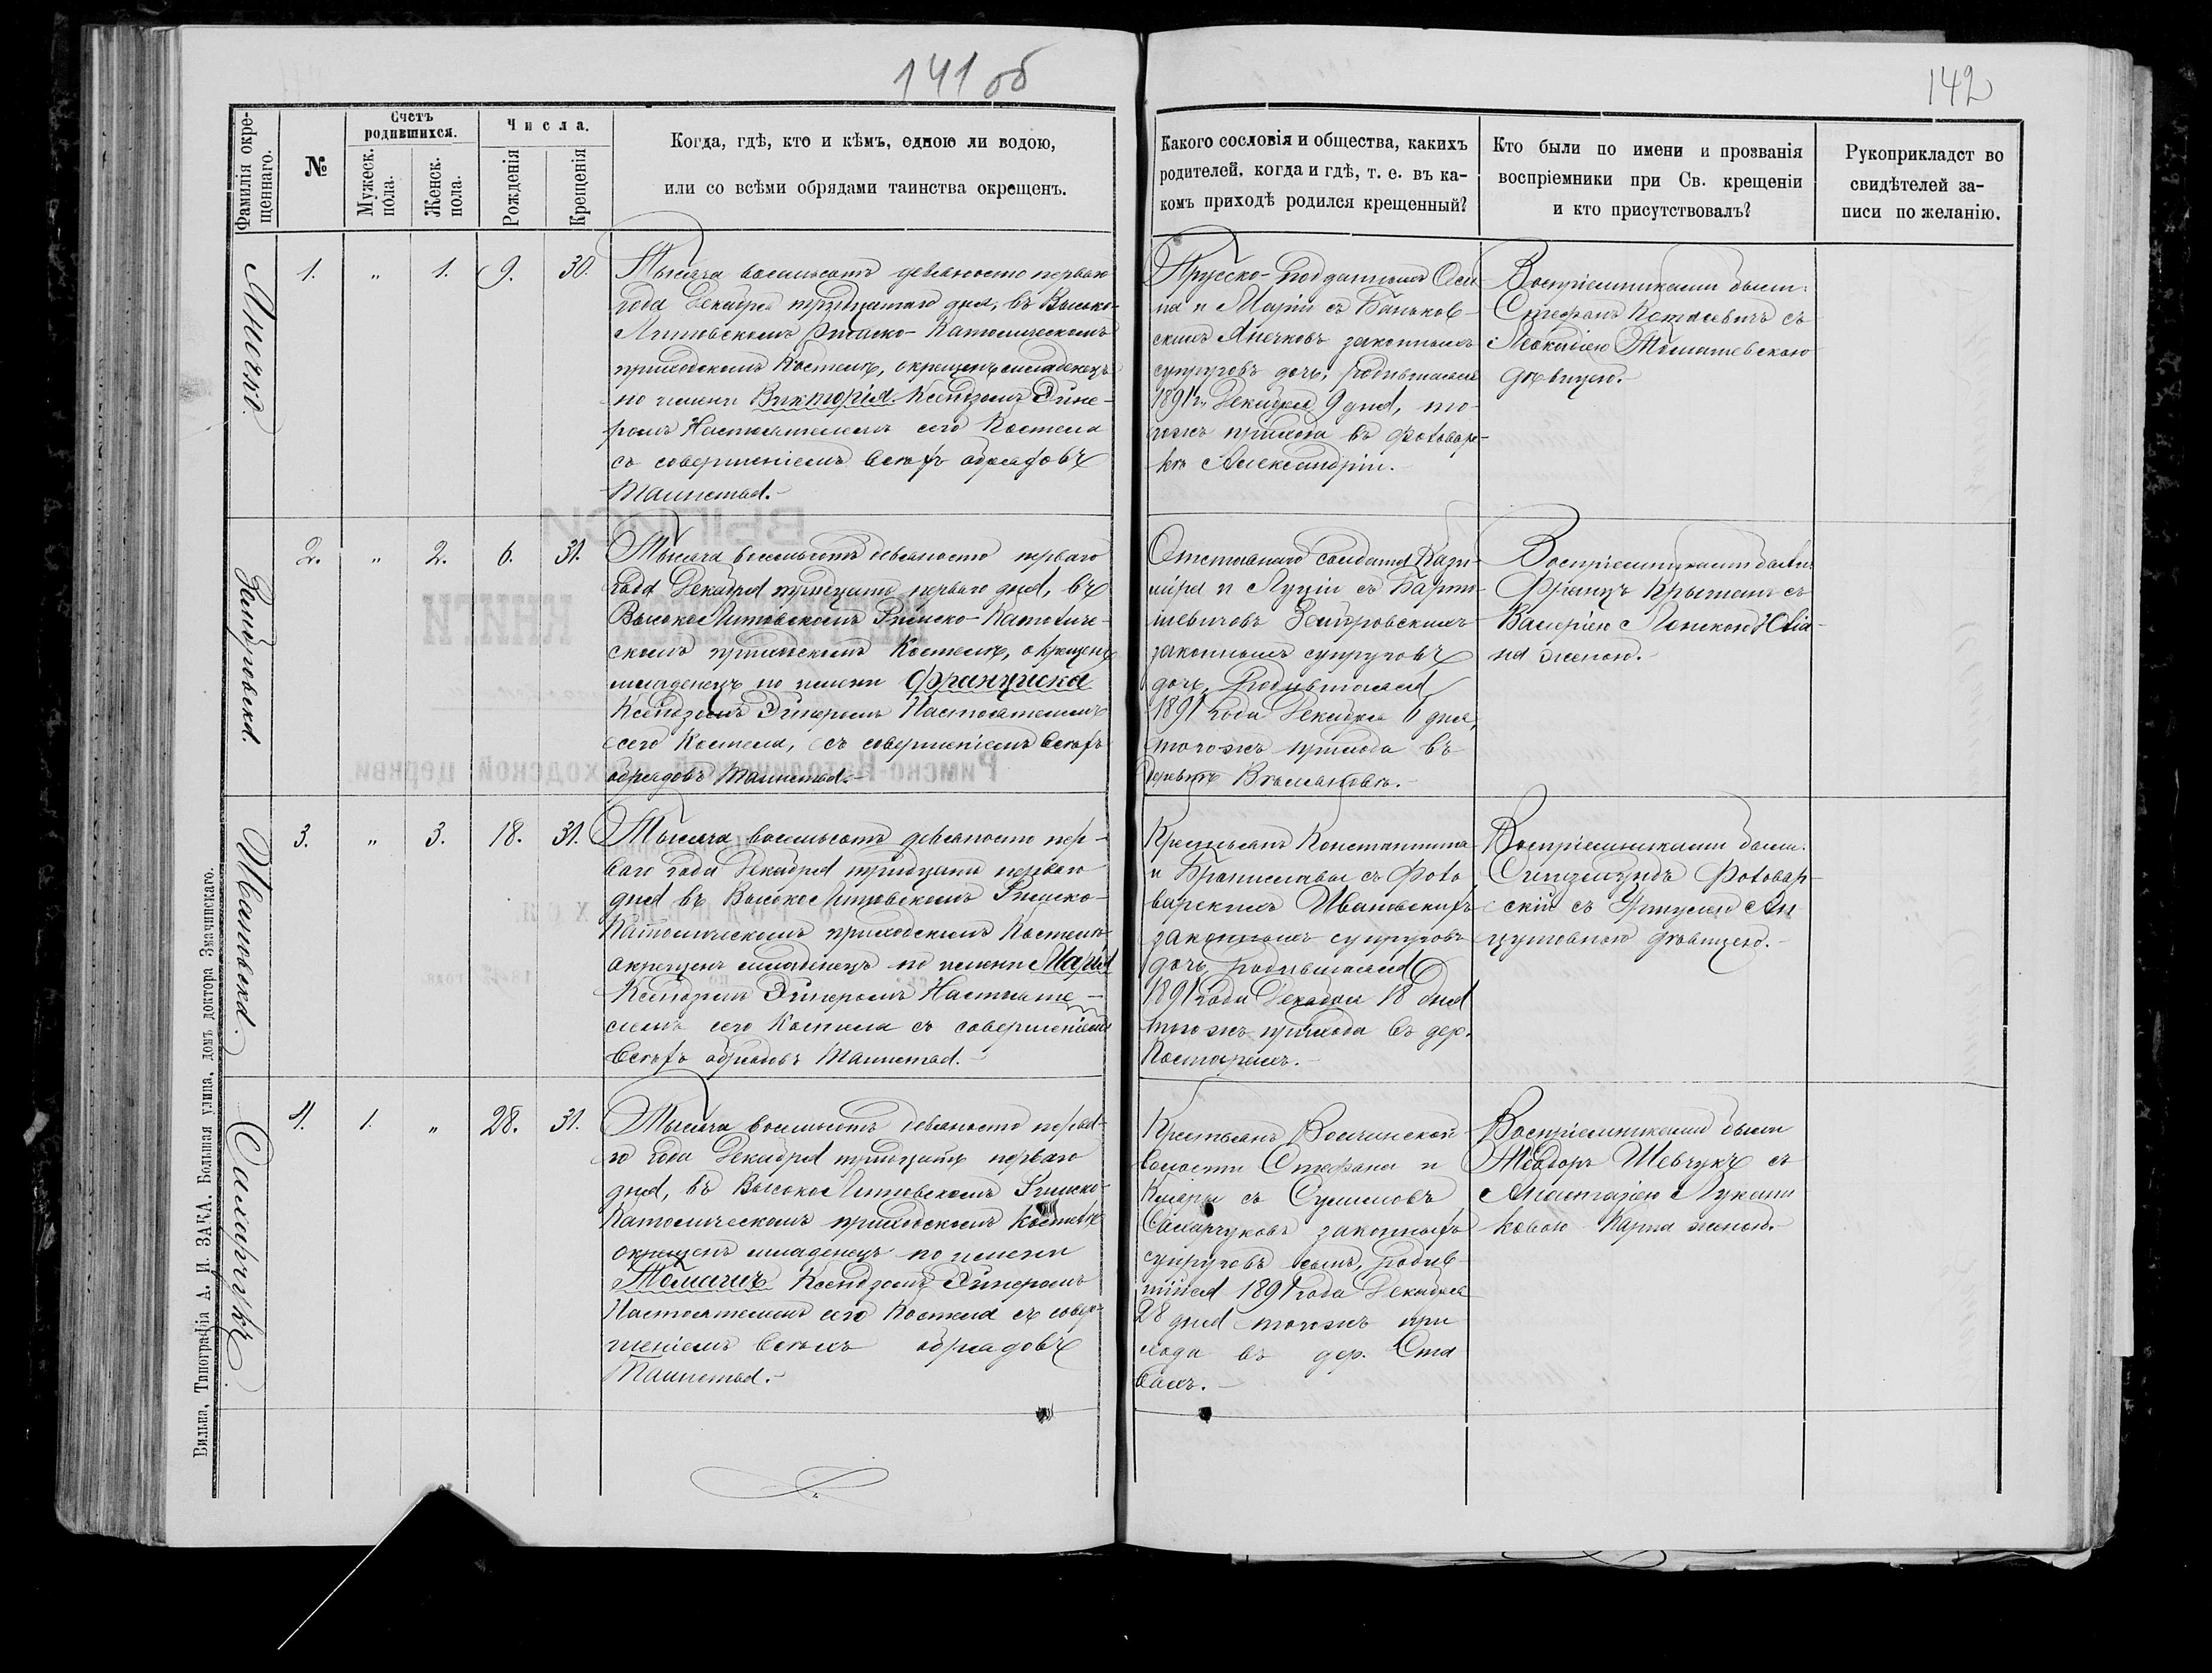 141 об
142
Фамилія окре-
щеннаго.
№
Счетъ
родившихся.
Мужеск.
пола.
Женск.
пола.
Числа.
Рожденія
Крещенія
Когда, гдѣ, кто и кѣмъ, одною ли водою,
или со всѣми обрядами таинства окрещенъ.
Какого сословія и общества, какихъ
родителей, когда и гдѣ, т. е. въ ка-
комъ приходѣ родился крещенный?
Кто были по имени и прозванія
воспріемники при Св. крещеніи
и кто присутствовалъ?
Рукоприкладст во
свидѣтелей за-
писи по желанію.
1.
"
1.
9.
30.
Тысяча восемьсотъ девяносто перваго
года Декабря тридцатаго дня, въ Высоко-
Литовскомъ Римско-Католическомъ
приходскомъ Костелѣ, окрещенъ младенецъ
по имени Викторія Ксендзомъ
Настоятелемъ сего Костела
съ совершеніемъ всѣхъ обрядовъ
таинства.
Прусско-подданныхъ Оси-
па и Маріи съ Баньков-
скихъ законныхъ
супруговъ дочь, родившаяся
1891 г. Декабря 9 дня, то-
гожъ прихода въ фольвар-
кѣ Александріи.
Воспріемниками были:
Стефанъ съ
Леокадіею Томашевскою
дѣвицею.
2.
"
2.
6.
31.
Тысяча восемьсотъ девяносто перваго
года Декабря тридцать перваго дня, въ
Высоко Литовскомъ Римско-Католиче-
скомъ приходскомъ Костелѣ, окрещенъ
младенецъ по имени Франциска
Ксендзомъ Настоятелемъ
сего Костела, съ совершеніемъ всѣхъ
обрядовъ таинства.
Отставнаго солдата Кази-
міра и Луціи съ Барто-
шевичовъ
законныхъ супруговъ
дочь, родившаяся
1891 года Декабря 6 дня,
тогожъ прихода въ
деревнѣ
Воспріемниками были:
Францъ съ
Валеріею Юліа-
на женою.
Ивановска.
3.
"
3.
18.
31.
Тысяча восемьсотъ девяносто пер-
ваго года Декабря тридцать перваго
дня въ Высоко Литовскомъ Римско-
Католическомъ приходскомъ Костелѣ
окрещенъ младенецъ по имени Марія
Ксендзомъ Настояте-
лемъ сего Костела съ совершеніемъ
всѣхъ обрядовъ таинства.
Крестьянъ Константина
и Брониславы съ Фоль-
варскихъ Ивановскихъ
законныхъ супруговъ
дочь, родившаяся
1891 года Декабря 18 дня
тогожъ прихода въ дер.
Костарахъ.
Воспріемниками были:
Сигизмундъ Фольвар-
скій съ Ан-
цутовною дѣвицею.
4.
1.
"
28.
31.
Тысяча восемьсотъ девяносто перва-
го года Декабря тридцать перваго
дня, въ Высоко Литовскомъ Римско-
Католическомъ приходскомъ Костелѣ
окрещенъ младенецъ по имени
Ксендзомъ
Настоятелемъ сего Костела съ совер-
шеніемъ всѣхъ обрядовъ
таинства.
Крестьянъ Волчинской
волости Стефана и
Клары съ
законныхъ
супруговъ сынъ, родив-
шійся 1891 года Декабря
28 дня тогожъ при-
хода въ дер. Ста-
вахъ.
Воспріемниками были
Теодоръ Шевчукъ съ
Анастасіею
Карпа женою.
Вильна, Типографія А. И. ЗАКА. Большая улица, домъ доктора Значинскаго.